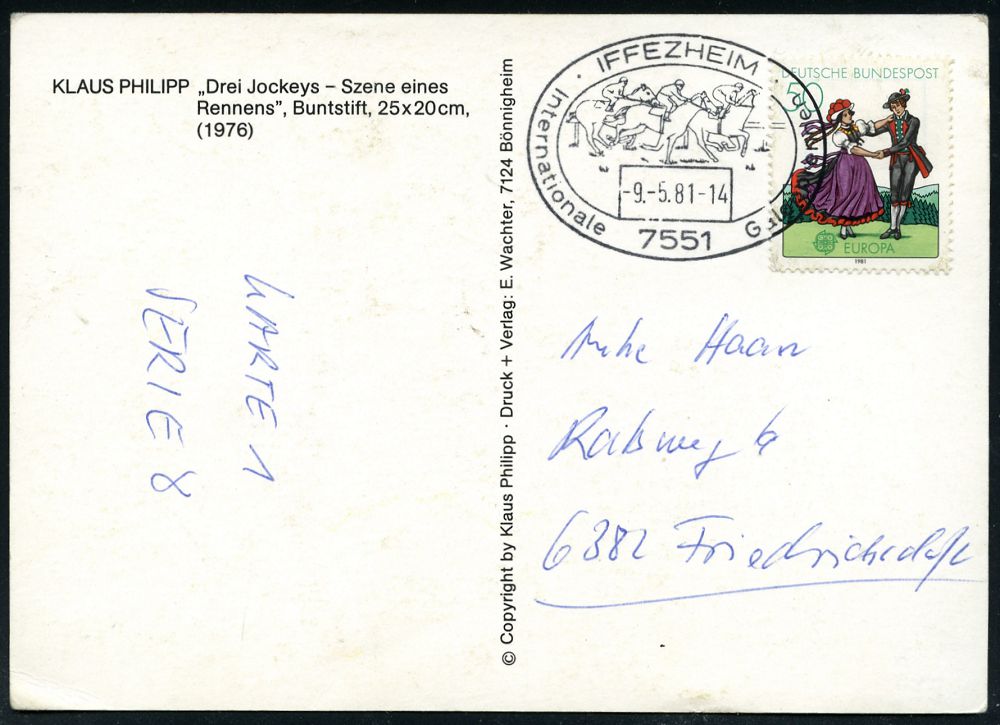 KLAUS PHILIPP „Drei Jockeys – Szene eines
Rennens”, Buntstift, 25x20cm,
(1976)
KARTE 1
SERIE 8
© Copyright by Klaus Philipp · Druck + Verlag: E. Wachter, 7124 Bönnigheim
· IFFEZHEIM ·
Internationale
-9.-5.81-14
7551
DEUTSCHE BUNDESPOST
50
EUROPA
1981
Haan
6382 Friedrichsdorf